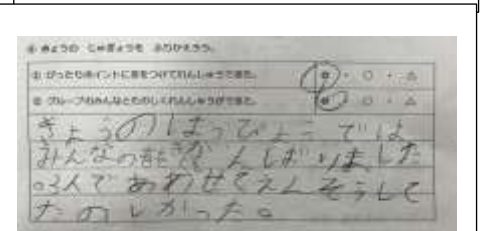 ④ きょうの じゅぎょうを ふりかえろう。
① ぴったりポイントに気をつけてれんしゅうできた。 ◎ ・ ○ ・ △
② グループのみんなとたのしくれんしゅうができた。 ◎ ・ ○ ・ △
きょうのはっぴょうでは
みんなの前でがんばりました
。3人であわせてえんそうして
たのしかった。